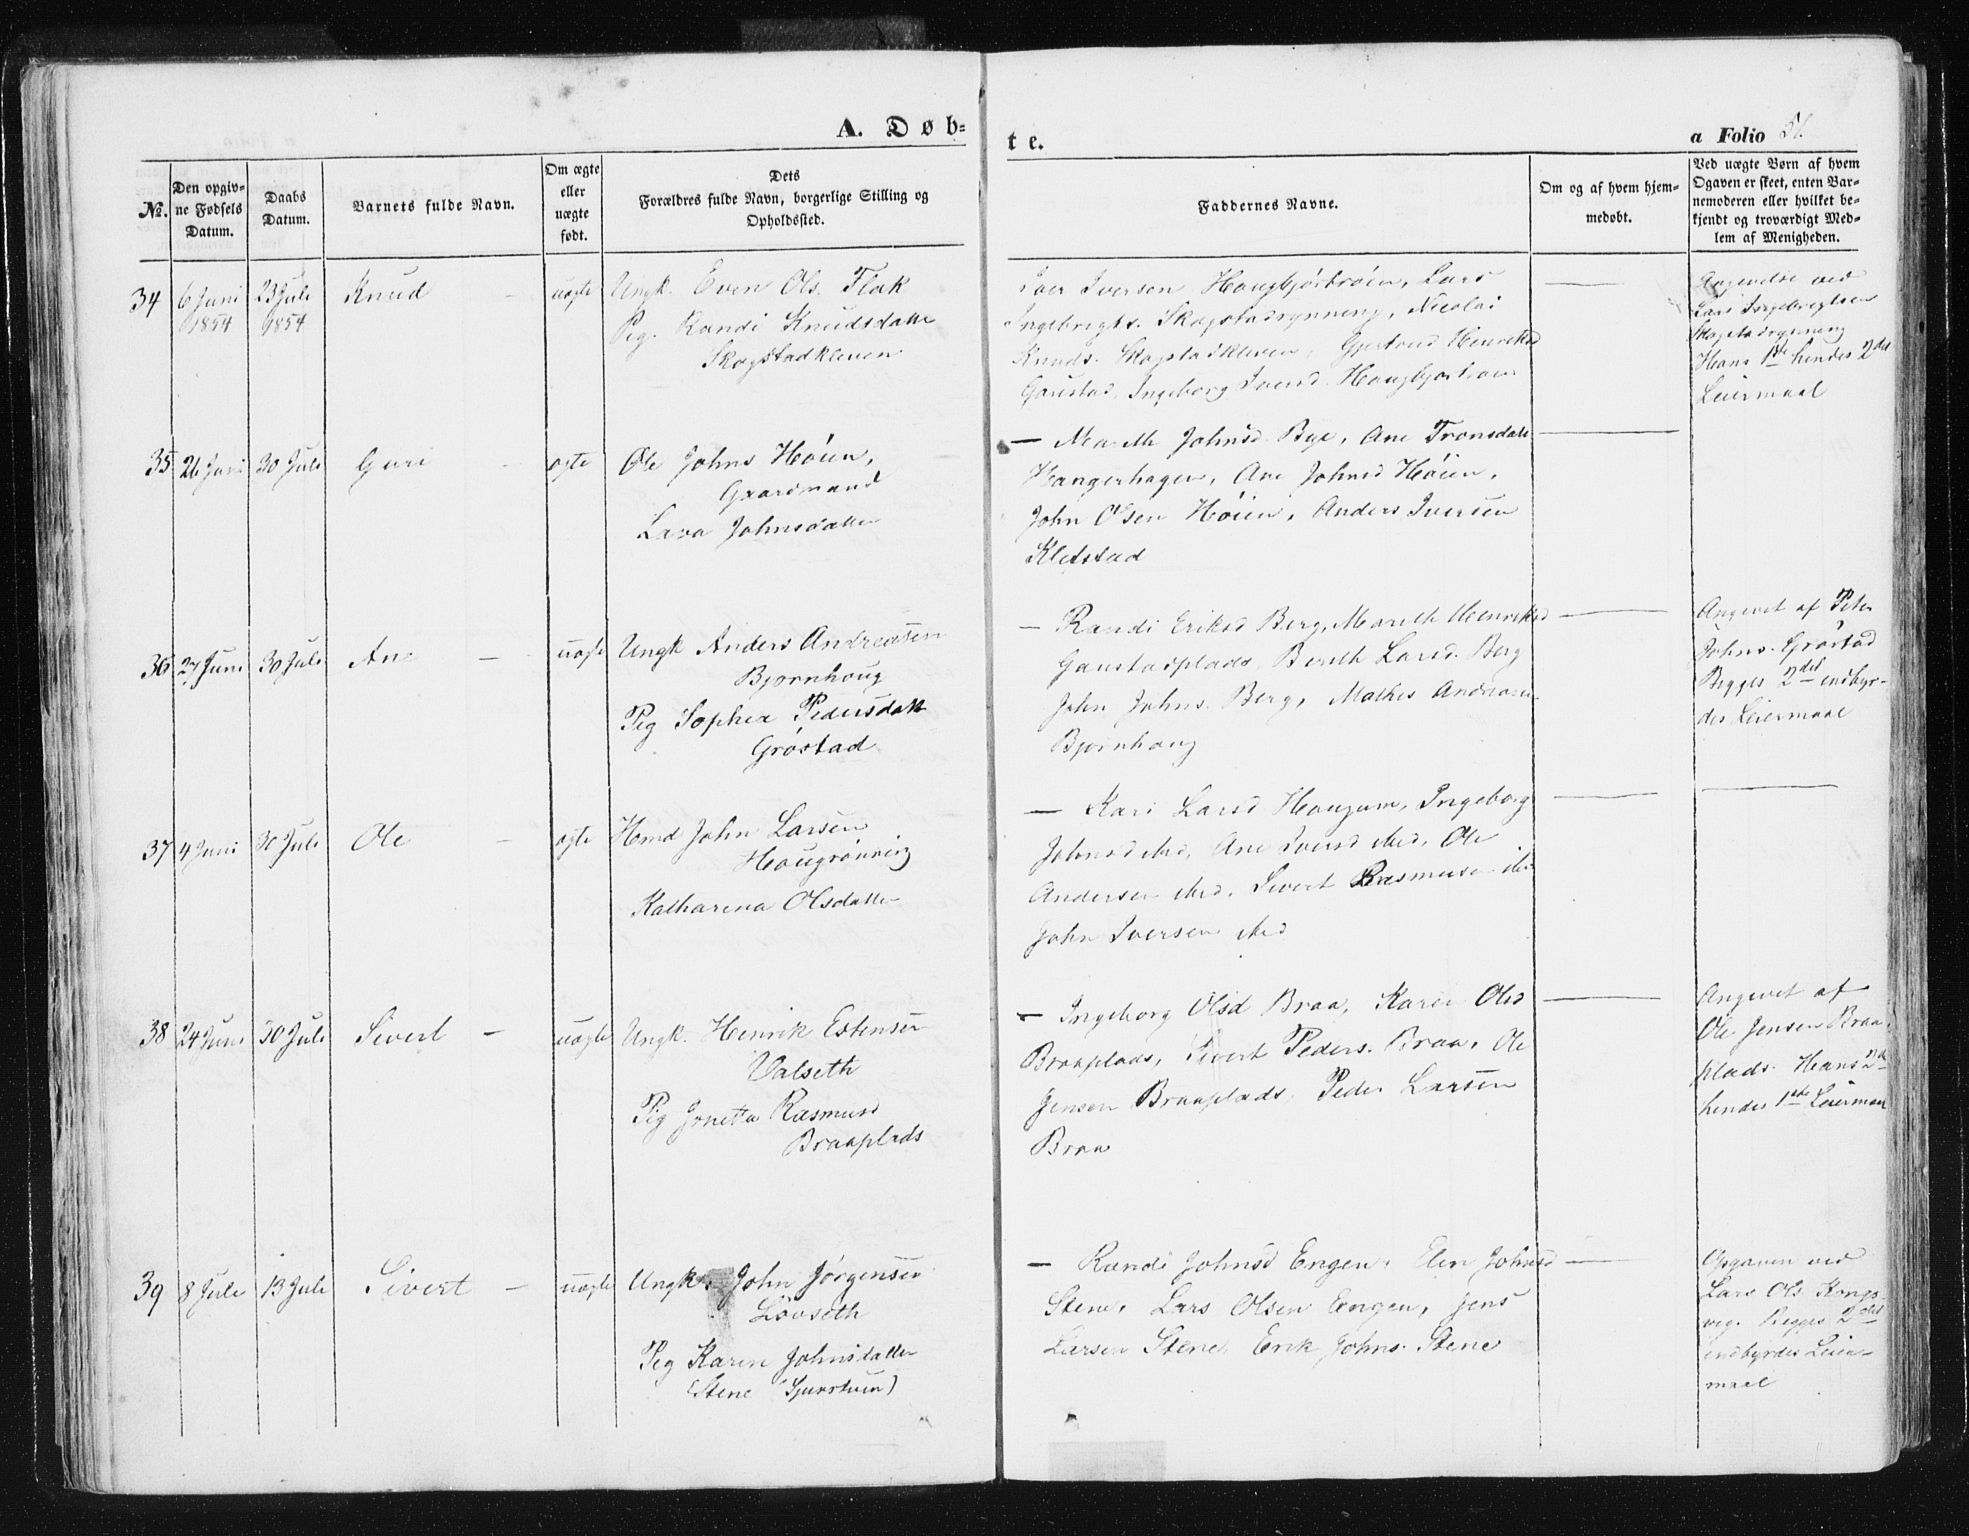 A. Døb-
te.
a Folio 51.
No.
Den opgiv-
ne Fødsels
Datum.
Daabs
Datum.
Barnets fulde Navn.
Om ægte
eller
uægte
født.
Dets
Forældres fulde Navn, borgerlige Stilling og
Opholdssted.
Faddernes Navne.
Om og af hvem hjem-
medøbt.
Ved uægte Børn af hvem
Opgaven er skeet, enten Bar-
nemoderen eller hvilket be-
kjendt og troværdigt Med-
lem af Menigheden.
34 6 Juni 23 Juli Knud - uægte Ungk. Even Ols. Flak
1854 1854 Pig. Randi Knudsdatte
Skogstadkleven
Iver Iversen Haugbjørtrøien, Lars
Ingebrigts. Skogstadrynning, Nicolai
Knuds. Skogstadkleven, Gjertrud Henriksd
Ingeborg Iversd.
Angivelse ved
Lars Ingebrigtsen
Skogstadrynning
Hans 1ste hendes 2det
Leiermaal
35 26 Juni 30 Juli Guri - ægte Ole Johns Høien,
Gaardmand
Lava Johnsdatter
- Marith Johnsd. Bye, Ane Tronsdatt
Ane Johnsd Høien,
John Olsen Høien, Anders Iversen
Kletstad
36 27 Juni 30 Juli Ane - uægte Ungk Anders Andreasen
Bjørnhoug
Pig Sophie Pedersdatt
Grøstad
- Randi Eriksd Berg, Marith Henriksd
Gaustadplads, Berith Larsd. Berg
John Johns. Berg, Mathis Andreasen
Bjørnhoug
Angivet af Peter
Johns. Grøstad
Begges 2det indbyr-
des Leiermaal
37 4 Juni 30 Juli Ole - ægte Hmd John Larsen
Hougrønning
Katharina Olsdatter
- Kari Larsd Hougum, Ingeborg
Johnsd ibid, Ane Iversd ibid, Ole
Andersen ibid, Sivert Rasmusen ibid
John Iversen ibid
38 24 Juni 30 Juli Sivert - uægte Ungk. Henrik Estensen
Valseth
Pig Jonetta Rasmusd
Braaplads
- Ingeborg Olsd Braa, Karen Olsd
Braaplads, Sivert Peders. Braa, Ole
Jensen Braaplads, Peder Larsen
Braa
Angivet af
Ole Jensen Braa-
plads. Hans 2det
hendes 1ste Leiermaal
39 8 Juli 13 Juli Sivert - uægte Ungk. John Jørgensen
Løvseth
Pig Karen Johnsdatter
Stene
- Randi Johnsd Engen, Elen Johnsd
Stene, Lars Olsen Engen, Jens
Larsen Stene, Erik Johns. Stene
Opgaven ved
Lars Ols. Kongs
veg. Begges 2det
indbyrdes Leier-
maal